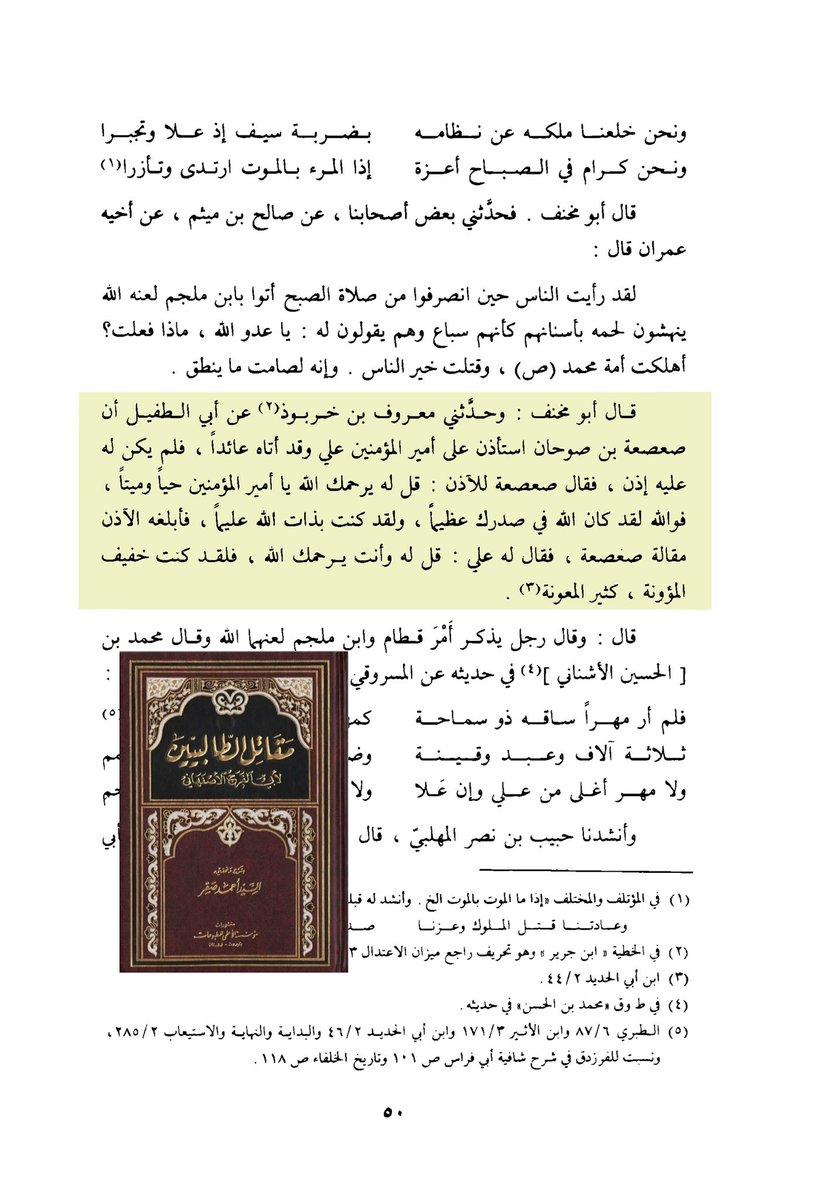 ونحن خلعنا ملكه عن نظامه بضربة سيف إذ علا وتجبرا
ونحن كرام في الصباح أعزة إذا المرء بالموت ارتدى وتأزرا(١)
قال أبو مخنف . فحدَّثني بعض أصحابنا ، عن صالح بن ميثم ، عن أخيه
عمران قال :
لقد رأيت الناس حين انصرفوا من صلاة الصبح أتوا بابن ملجم لعنه الله
ينهشون لحمه بأسنانهم كأنهم سباع وهم يقولون له : يا عدو الله ، ماذا فعلت؟
أهلكت أمة محمد (ص) ، وقتلت خير الناس . وإنه لصامت ما ينطق .
قال أبو مخنف : وحدَّثني معروف بن خربوذ(٢) عن أبي الطفيل أن
صعصعة بن صوحان استأذن على أمير المؤمنين علي وقد أتاه عائداً ، فلم يكن له
عليه إذن ، فقال صعصعة للآذن : قل له يرحمك الله يا أمير المؤمنين حياً وميتاً ،
فوالله لقد كان الله في صدرك عظيماً ، ولقد كنت بذات الله عليماً ، فأبلغه الآذن
مقالة صعصعة ، فقال له علي : قل له وأنت يرحمك الله ، فلقد كنت خفيف
المؤونة ، كثير المعونة(٣) .
قال : وقال رجل يذكر أَمْرَ قطام وابن ملجم لعنهما الله وقال محمد بن
[ الحسين الأشناني ](٤) في حديثه عن المسروقي :
فلم أر مهراً ساقه ذو سماحة (٥)
ثلاثة آلاف وعبد وقينة
ولا مهر أغلى من علي وإن عَلا ولا
وأنشدنا حبيب بن نصر المهلبيّ ، قال
مقاتل الطالبيين
لأبي الفرج الأصفهاني
شرح وتحقيق
السيد أحمد صقر
منشورات
مؤسسة الأعلمي للمطبوعات
(١) في المؤتلف والمختلف «إذا ما الموت بالموت الخ . وأنشد له
وعادتنا قتل الملوك وعزنا
(٢) في الخطية « ابن جرير » وهو تحريف راجع ميزان الاعتدال ٣
(٣) ابن أبي الحديد ٤٤/٢ .
(٤) في ط وق «محمد بن الحسن» في حديثه .
(٥) الطبري ٨٧/٦ وابن الأثير ١٧١/٣ وابن أبي الحديد ٤٦/٢ والبداية والنهاية والاستيعاب ٢٨٥/٢ ،
ونسبت للفرزدق في شرح شافية أبي فراس ص ١٠١ وتاريخ الخلفاء ص ١١٨ .
٥٠